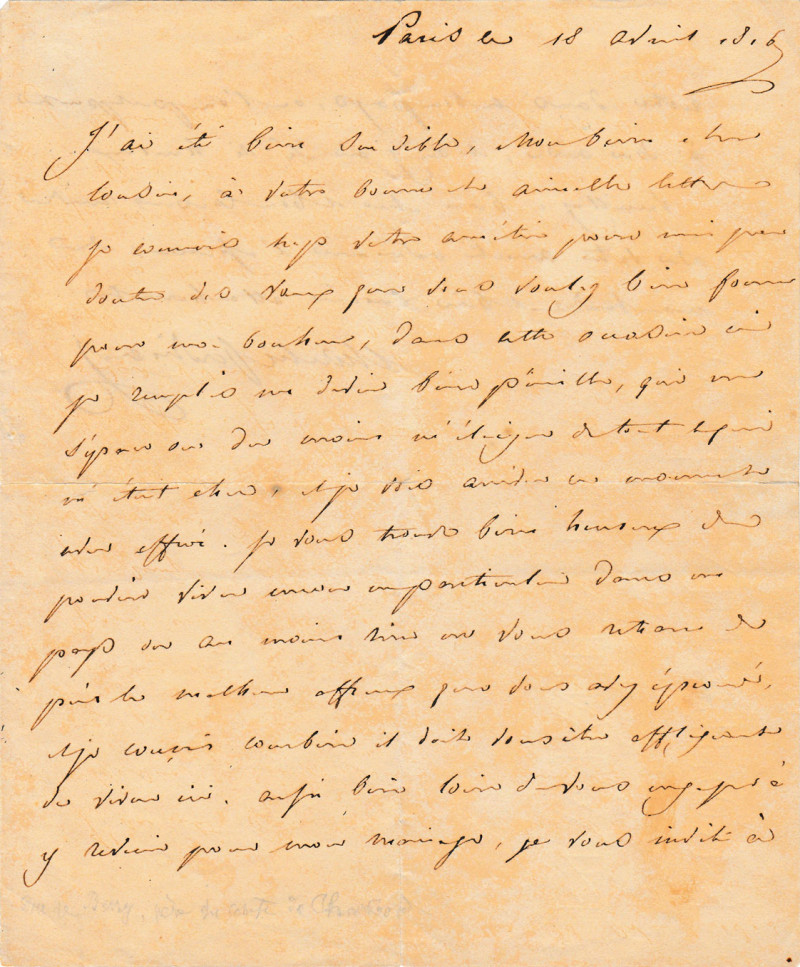 Paris le 18 avril 1816
J'ai été bien sensible, mon bien cher
cousin, à votre bonne et aimable lettre
je connois trop votre amitié pour moi pour
douter des vœux que vous voulez bien former
pour mon bonheur, dans cette occasion ci
je remplis un devoir bien pénible, qui me
sépare ou du moins m'éloigne de tout ce qui
m'étoit cher, et je vois arriver ce moment
avec effroi. Je vous trouve bien heureux de
pouvoir vivre encore en particulier dans un
pays ou au moins rien ne vous retrace de
près le malheur affreux que vous avez éprouvé,
et je conçois combien il doit vous être affligeant
de vivre ici. aussi bien loin de vous engager à
y revenir pour mon mariage, je vous invite à
Duc de Berry, père du comte de Chambord